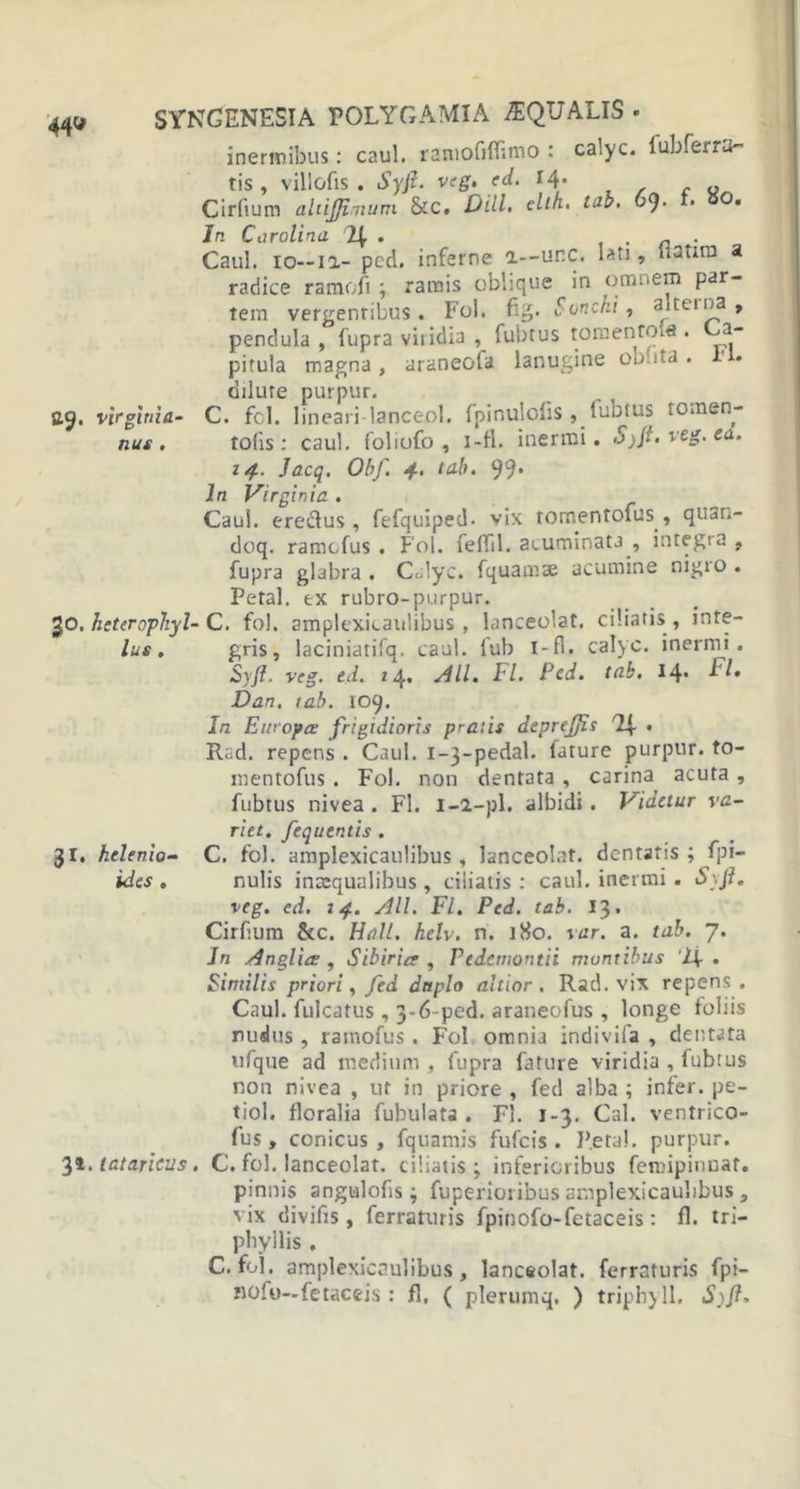 440 SYNGENESIA POLYGAMIA ÆQUALIS .
inermibus : caul. ramoſiſſimo : calyc. ſubſerra-
tis , villoſis . Syſt. veg. ed. 14.
Cirſium altiſſimum &c. Dill. elth. tab. 69. f. 80.
In Carolina ♃ .
Caul. 10--12- ped. inferne 2--unc. lati , ſtatim a
radice ramoſi ; ramis oblique in omnem par-
tem vergentibus . Fol. fig. Sonchi , alterna ,
pendula , ſupra viridia , ſubtus tomentoſa . Ca-
pitula magna , araneoſa lanugine obſita . Fl.
dilute purpur.
29. virginia- C. fol. lineari-lanceol. ſpinuloſis , ſubtus tomen-
nus . toſis : caul. folioſo , 1-fl. inermi . Syſt. veg. ed.
14. Jacq. Obſ. 4. tab. 99.
In Virginia .
Caul. erectus , ſeſquiped. vix tomentoſus , quan-
doq. ramoſus . Fol. ſeſſil. acuminata , integra ,
ſupra glabra . Calyc. ſquamæ acumine nigro .
Petal. ex rubro-purpur.
30. heterophyl- C. fol. amplexicaulibus , lanceolat. ciliatis , inte-
lus . gris, laciniatiſq. caul. ſub 1-fl. calyc. inermi .
Syſt. veg. ed. 14. All. Fl. Ped. tab. 14. Fl.
Dan. tab. 109.
In Europæ frigidioris pratis depreſſis ♃ .
Rad. repens . Caul. 1-3-pedal. ſature purpur. to-
mentoſus . Fol. non dentata , carina acuta ,
ſubtus nivea . Fl. 1-2-pl. albidi . Videtur va-
riet. ſequentis .
31. helenio- C. fol. amplexicaulibus , lanceolat. dentatis ; ſpi-
ides . nulis inæqualibus , ciliatis : caul. inermi . Syſt.
veg. ed. 14. All. Fl. Ped. tab. 13.
Cirſium &c. Hall. helv. n. 180. var. a. tab. 7.
In Angliæ , Sibiriæ , Pedemontii montibus ♃ .
Similis priori , ſed duplo altior . Rad. vix repens .
Caul. ſulcatus , 3-6-ped. araneoſus , longe foliis
nudus , ramoſus . Fol. omnia indiviſa , dentata
uſque ad medium , ſupra ſature viridia , ſubtus
non nivea , ut in priore , ſed alba ; infer. pe-
tiol. floralia ſubulata . Fl. 1-3. Cal. ventrico-
ſus , conicus , ſquamis fuſcis . Petal. purpur.
32. tataricus . C. fol. lanceolat. ciliatis ; inferioribus ſemipinnat.
pinnis anguloſis ; ſuperioribus amplexicaulibus ,
vix diviſis , ſerraturis ſpinoſo-ſetaceis : fl. tri-
phyllis .
C. fol. amplexicaulibus , lanceolat. ſerraturis ſpi-
noſo--ſetaceis : fl. ( plerumq. ) triphyll. Syſt.